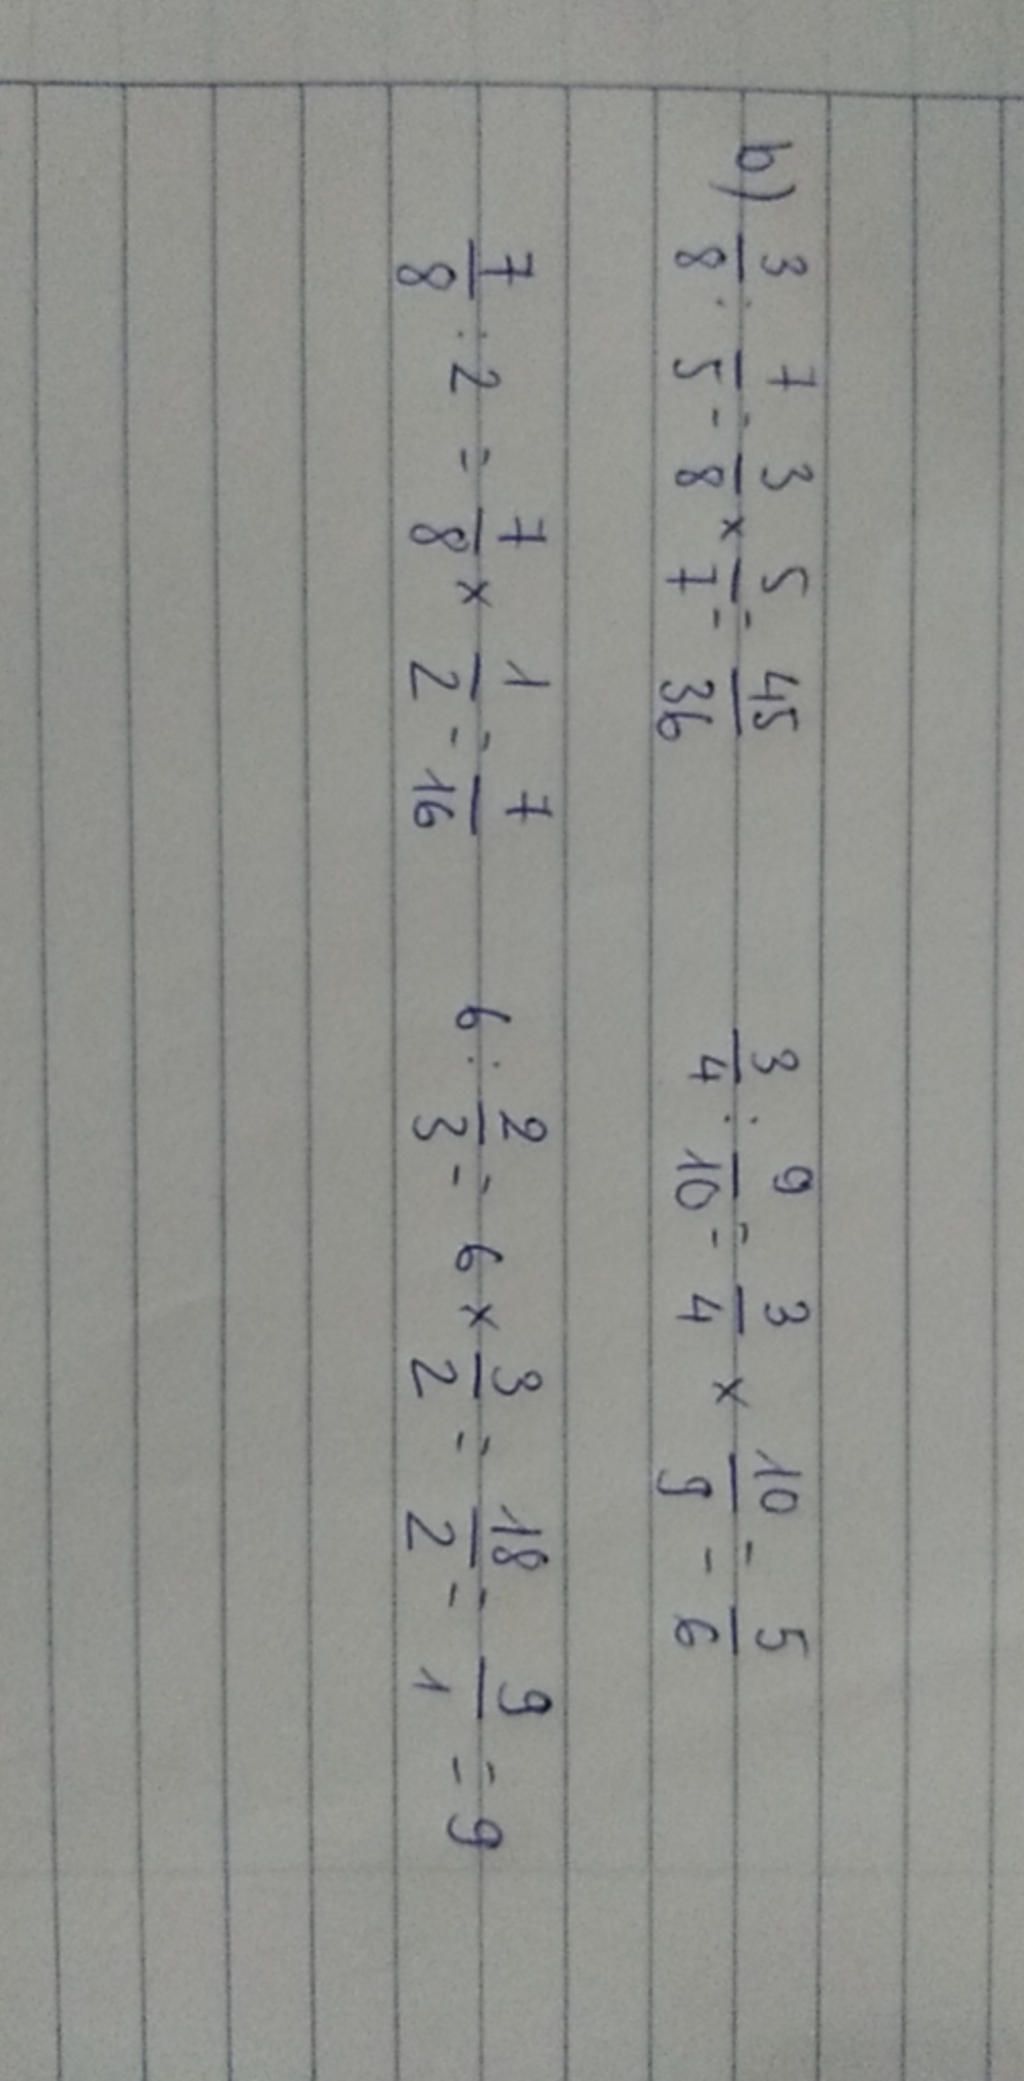 b) 3/8 : 7/5 = 3/8 × 5/7 = 45/36 3/4 : 9/10 = 3/4 × 10/9 = 5/6
7/8 : 2 = 7/8 × 1/2 = 7/16 6 : 2/3 = 6 × 3/2 = 18/2 = 9/1 = 9